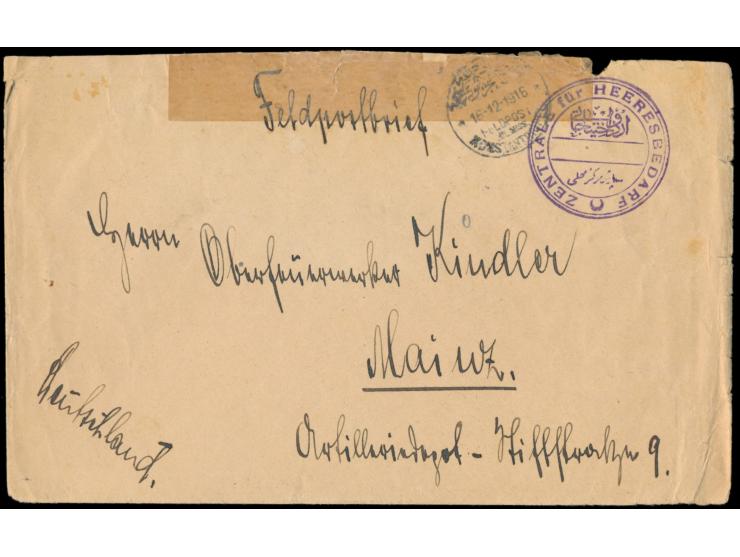 Feldpostbrief
16·12·1916
FELDPOST
ZENTRALE für HEERESBEDARF
Herrn
Oberfeuerwerker Kindler
Mainz.
Artilleriedepot - Stiftstraße 9.
Deutschland.